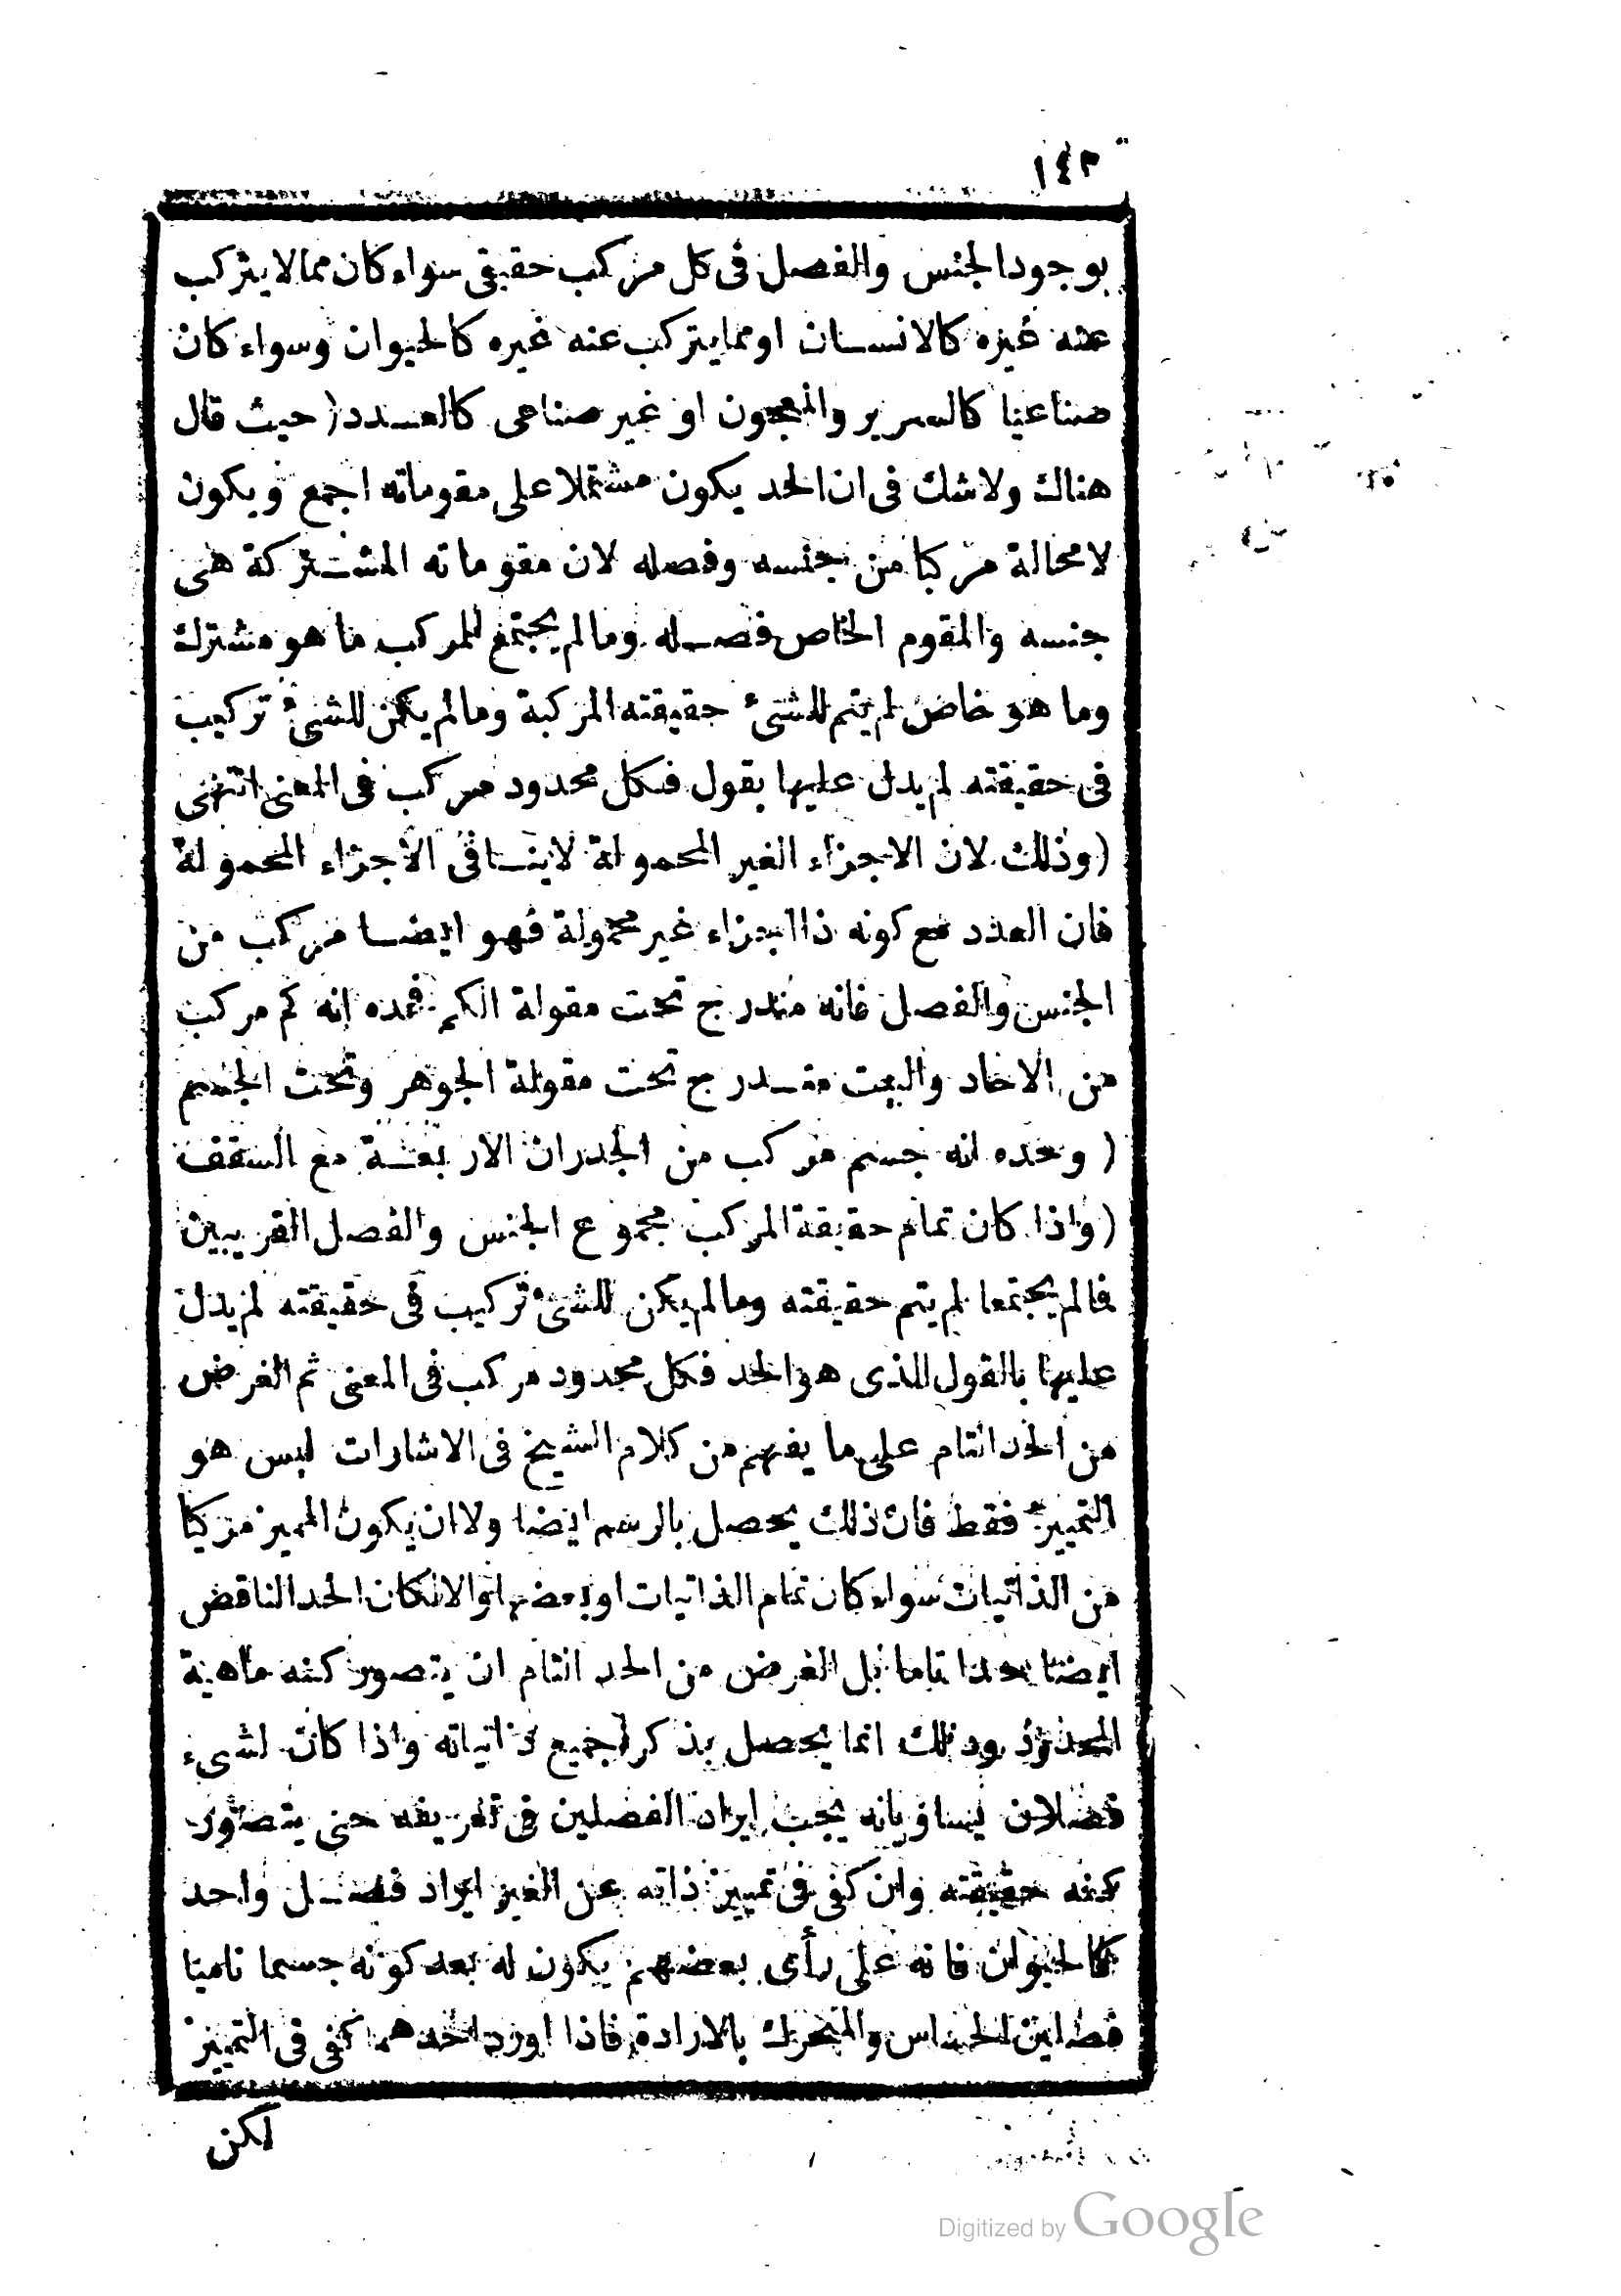 ١٤٢
بوجود الجنس والفصل فى كل مركب حقيقى سواء كان مما لا يتركب
عنه غيره كالانسان او مما يتركب عنه غيره كالحيوان وسواء كان
صناعيا كالسرير والمعجون او غير صناعى كالعدد ( حيث قال
هناك ولاشك فى ان الحد يكون مشتملا على مقوماته اجمع ويكون
لا محالة مركبا من جنسه وفصله لان مقوماته المشتركة هى
جنسه والمقوم الخاص فصله وما لم يجتمع للمركب ما هو مشترك
وما هو خاص لم يتم للشئ حقيقته المركبة وما لم يكن للشئ تركيب
فى حقيقته لم يدل عليها بقول فكل محدود مركب فى المعنى انتهى
( وذلك لان الاجزاء الغير المحمولة لا ينافى الاجزاء المحمولة
فان العدد مع كونه ذا اجزاء غير محمولة فهو ايضا مركب من
الجنس والفصل فانه مندرج تحت مقولة الكم فحده انه كم مركب
من الاحاد والبيت مندرج تحت مقولة الجوهر وتحت الجسم
( وحده انه جسم مركب من الجدران الاربعة مع السقف
( واذا كان تمام حقيقة المركب مجموع الجنس والفصل القريبين
فالم يجتمعا لم يتم حقيقته وما لم يكن للشئ تركيب فى حقيقته لم يدل
عليها بالقول الذى هو الحد فكل محدود مركب فى المعنى ثم الغرض
من الحد التام على ما يفهم من كلام الشيخ فى الاشارات ليس هو
التمييز فقط فان ذلك يحصل بالرسم ايضا ولا ان يكون المميز مركبا
من الذاتيات سواء كان تمام الذاتيات او بعضها والا لكان الحد الناقص
ايضا حدا تاما بل الغرض من الحد التام ان يتصور كنه ماهية
المحدود وذلك انما يحصل بذكر جميع ذاتياته واذا كان لشىء
فصلان يساويانه يجب ايراد الفصلين فى تعريفه حتى يتصور
كنه حقيقته وان كفى فى تمييز ذاته عن الغير ايراد فصل واحد
كالحيوان فانه على رأى بعضهم يكون له بعد كونه جسما ناميا
فصلين الحساس والمتحرك بالارادة فاذا اورد احدهما كفى فى التمييز
لكن
Digitized by Google